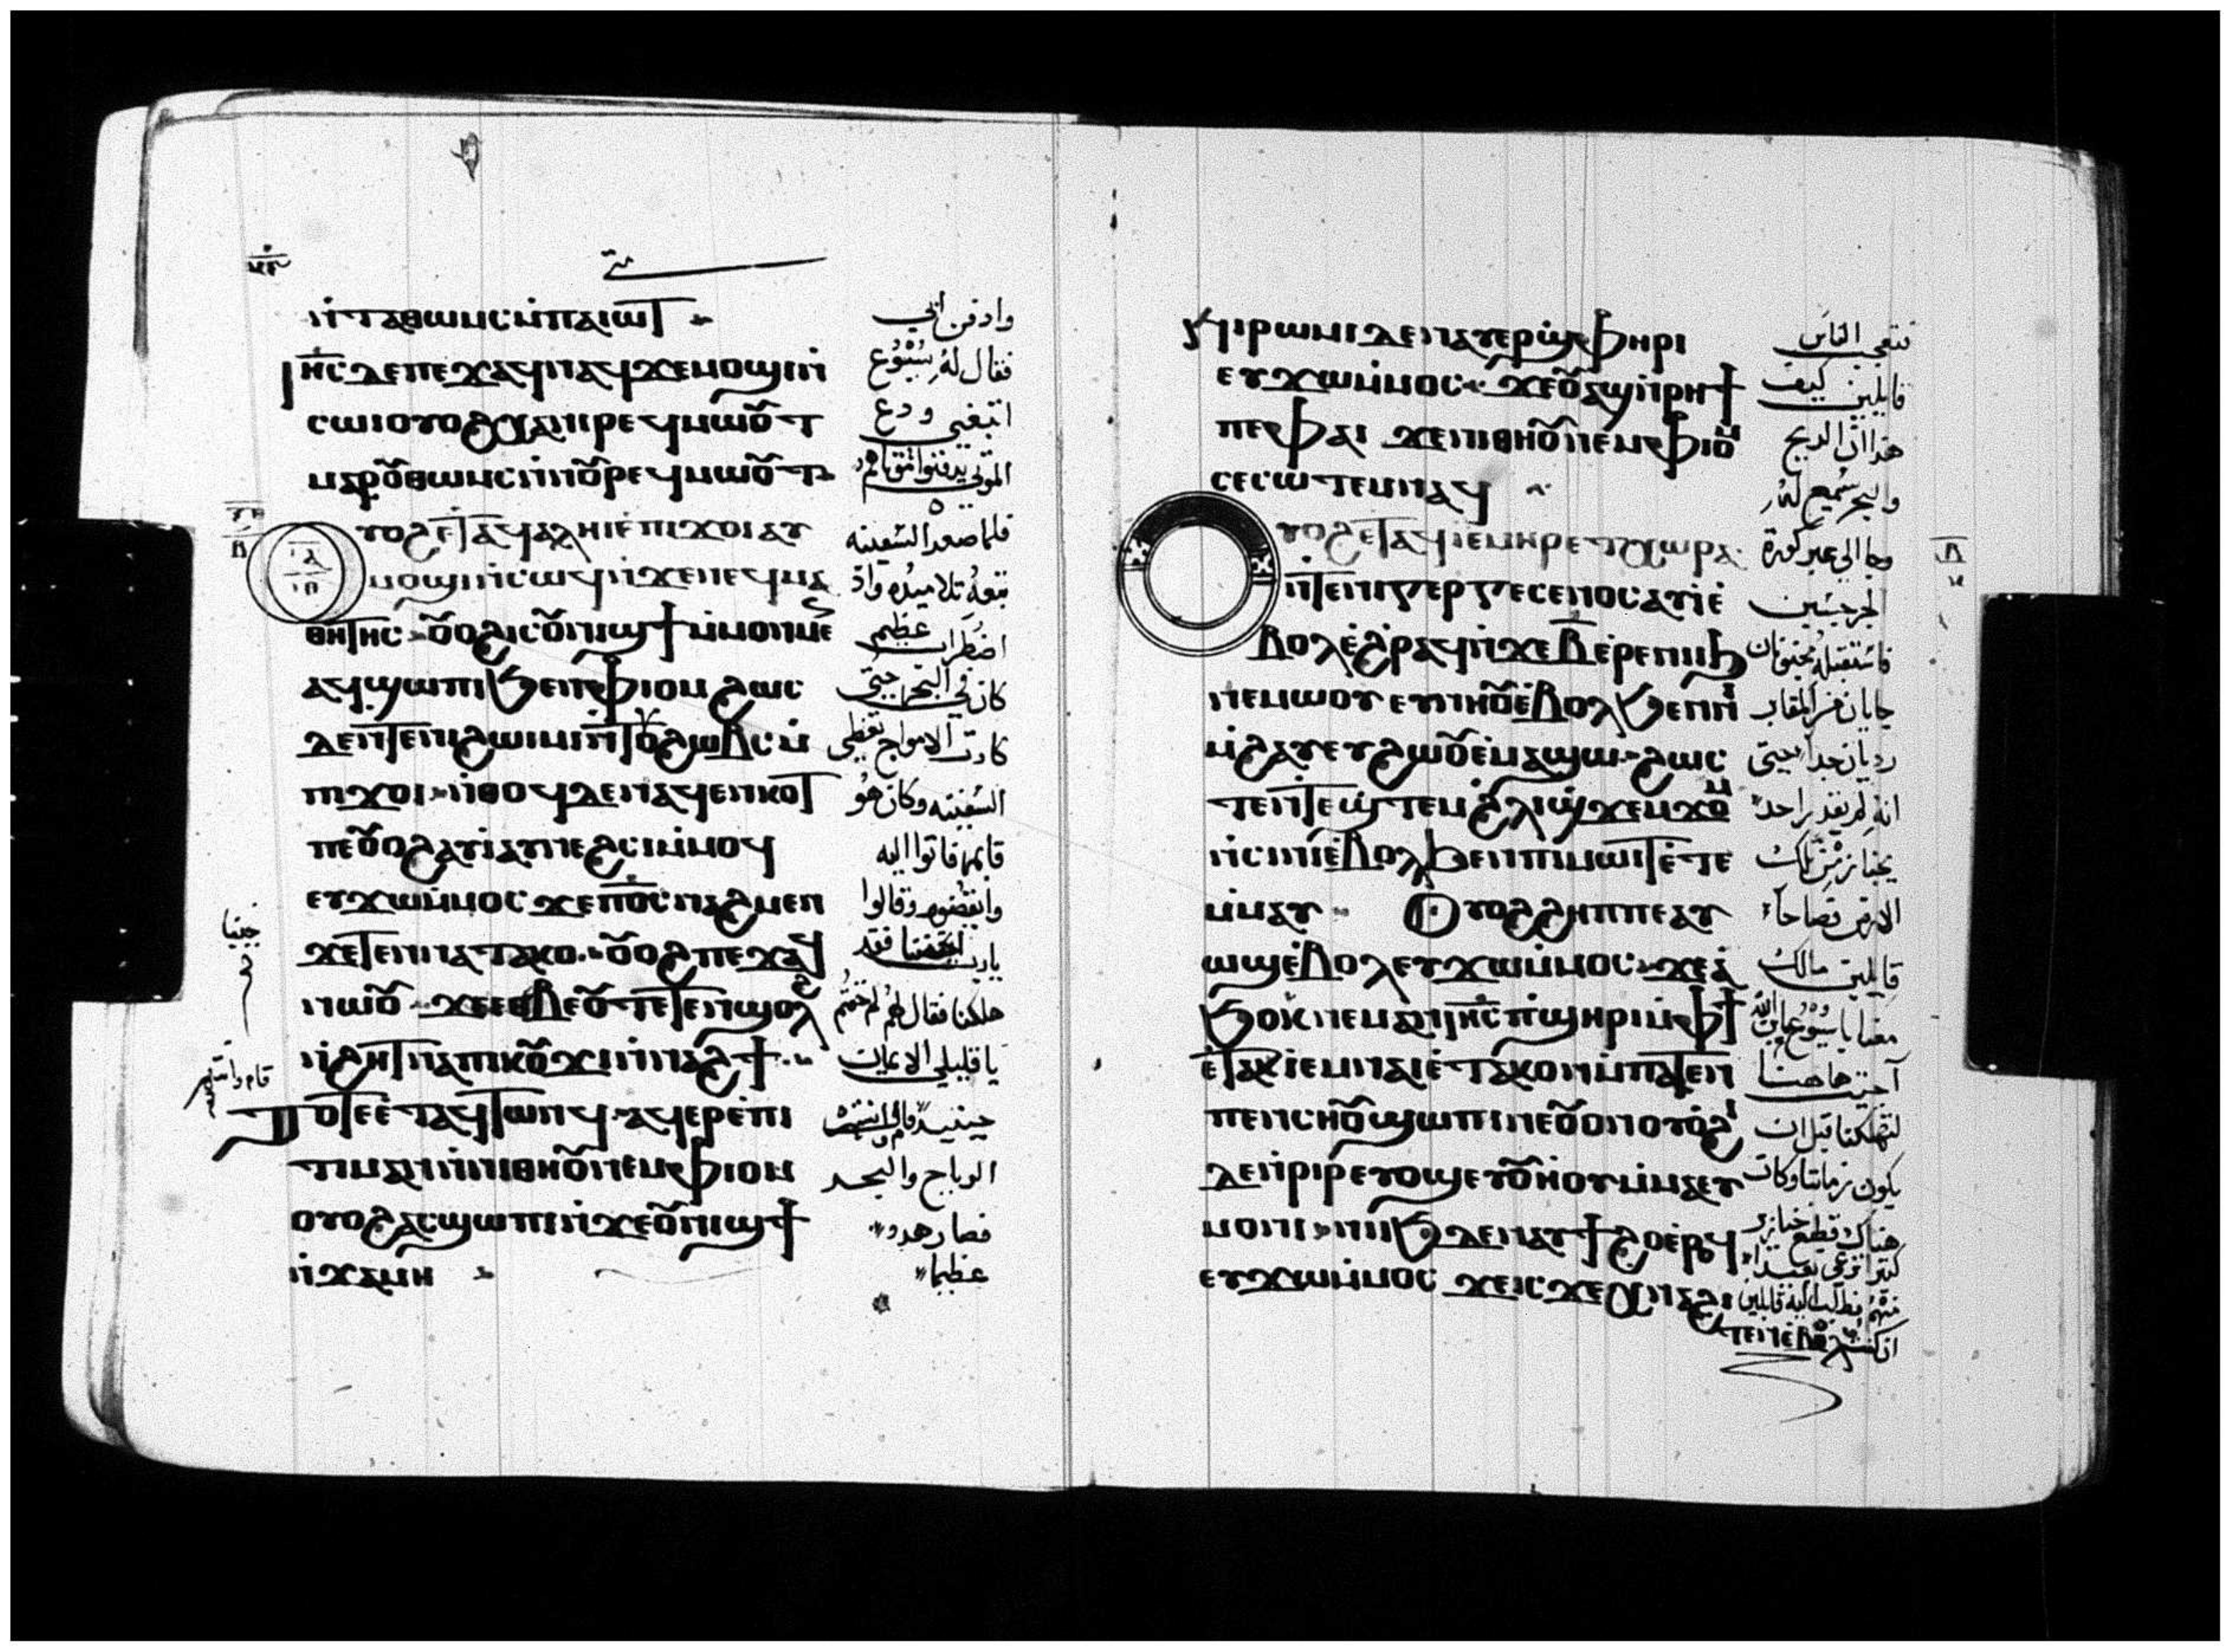 ⲛ̀ⲧⲁⲑⲱⲙⲥⲙ̀ⲡⲁⲓⲱⲧ
ⲓⲏⲥⲇⲉⲡⲉϫⲁϥⲛⲁϥϫⲉⲙⲟϣⲓⲛ̀
ⲥⲱⲓⲟⲩⲟϩⲭⲁⲛⲓⲣⲉϥⲙⲱⲟⲩⲧ
ⲙⲁⲣⲟⲩⲑⲱⲙⲥⲛ̀ⲛⲟⲩⲣⲉϥⲙⲱⲟⲩⲧ
ⲩⲟϩⲉⲧⲁϥⲁⲗⲏⲓⲉ̀ⲡⲓϫⲟⲓⲁⲩ
ⲙⲟϣⲓⲛ̀ⲥⲱϥⲛ̀ϫⲉⲛⲉϥⲙⲁ
ⲑⲏⲧⲏⲥ ⲟⲩⲟϩⲓⲥⲟⲩⲛⲓϣϯⲙ̀ⲙⲟⲛⲙⲉⲛ
ⲁϥϣⲱⲡⲓϧⲉⲛⲫⲓⲟⲙ ϩⲱⲥ
ⲇⲉⲛ̀ⲧⲉⲛⲓϩⲱⲓⲙⲓⲛ̀ⲧⲟⲩϩⲱⲃⲥⲙ̀
ⲡⲓϫⲟⲓ ⲛ̀ⲑⲟϥⲇⲉⲛⲁϥⲉⲛⲕⲟⲧ
ⲡⲉⲟⲩⲟϩⲁⲩⲓ̀ⲁⲩⲛⲉϩⲥⲓⲙ̀ⲙⲟϥ
ⲉⲩϫⲱⲙ̀ⲙⲟⲥ ϫⲉⲡⲟⲥⲛⲁϩⲙⲉⲛ
ϫⲉⲧⲉⲛⲛⲁⲧⲁⲕⲟ ⲟⲩⲟϩ ⲡⲉϫⲁϥ
ⲛⲱⲟⲩ ϫⲉⲉⲑⲃⲉⲟⲩⲧⲉⲧⲉⲛϣⲟⲗϩ
ⲛ̀ϩⲏⲧⲛⲁⲡⲓⲕⲟⲩϫⲓⲛ̀ⲛⲁϩϯ
ⲧⲟⲧⲉⲉ̀ⲧⲁϥⲧⲱⲛϥ ⲁϥⲉⲣⲉ̀ⲡⲓ
ⲧⲓⲙⲁⲛⲛ̀ⲛⲓⲑⲏⲟⲩⲛⲉⲙⲫⲓⲟⲙ
ⲟⲩⲟϩⲁⲥϣⲱⲡⲓⲛ̀ϫⲉⲟⲩⲛⲓϣϯ
ⲛ̀ϫⲁⲙⲏ
وادفن ابي
فقال له يسوع
اتبعني ودع
الموتى يدفنوا موتاهم
فلما صعد السفينه
تبعه تلاميذه واذ
اضطراب عظيم
كان في البحر حتى
كادت الامواج تغطي
السفينه وكان هو
نايمًا فاتوا اليه
وايقضوه وقالوا
يارب
هلكنا فقال لهم لم خفتم
يا قليلي الايمان
حينيد قام وانتهر
الرياح والبحر
فصار هدو
عظيما
ⲛⲓⲣⲱⲙⲓⲇⲉⲛⲁⲩⲉⲣϣ̀ⲫⲏⲣⲓ
ⲉⲩϫⲱⲙ̀ⲙⲟⲥ ϫⲉⲟⲩⲁϣⲛ̀ⲣⲏϯ
ⲡⲉⲫⲁⲓ ϫⲉⲛⲓⲑⲏⲟⲩⲛⲉⲙⲫⲓⲟⲙ
ⲥⲉⲥⲱⲧⲉⲙⲛⲁϥ
ⲩⲟϩⲉⲧⲁϥⲓ̀ⲉ̀ⲙⲏⲣⲉ̀ⲧⲭⲱⲣⲁ
ⲛ̀ⲧⲉⲛⲓⲅⲉⲣⲅⲉⲥⲉⲛⲟⲥⲁⲩⲓ̀ⲉ̀
ⲃⲟⲗⲉ̀ϩⲣⲁϥⲛ̀ϫⲉⲃⲉ̀ⲣⲉⲛⲓⲓϧ
ⲛⲉⲙⲱⲟⲩ ⲉⲩⲛⲏⲟⲩⲉ̀ⲃⲟⲗϧⲉⲛⲛⲓ
ⲙ̀ϩⲁⲩⲉⲩϩⲱⲟⲩⲉ̀ⲙⲁϣⲱ ϩⲱⲥ
ⲧⲉⲛ̀ⲧⲉϣ̀ⲧⲉⲙϩ̀ⲗⲓϣ̀ϫⲉⲙϫⲟⲙ
ⲛ̀ⲥⲓⲛⲓⲉ̀ⲃⲟⲗϧⲉⲛⲡⲓⲙⲱⲓⲧⲉ̀ⲧⲉ
ⲙ̀ⲙⲁⲩ ⲟⲩⲟϩϩⲏⲡⲡⲉⲁⲩ
ⲱϣⲉ̀ⲃⲟⲗⲉⲩϫⲱⲙ̀ⲙⲟⲥ ϫⲉⲁ̀
ϧⲟⲕⲛⲉⲙⲁⲛⲓⲏⲥⲡ̀ϣⲏⲣⲓⲙ̀ⲫϯ
ⲉ̀ⲧⲁⲕⲓ̀ⲉ̀ⲙⲛⲁⲓⲉ̀ⲧⲁⲕⲟⲛⲙ̀ⲡⲁⲧⲉⲛ
ⲡⲉⲛⲥⲏⲟⲩϣⲱⲡⲓⲛⲉⲟⲩⲟⲛⲟⲩⲟ̀ϩⲓ
ⲇⲉⲛ̀ⲣⲓⲣⲉⲩⲟϣⲉⲩⲟⲩⲏ̀ⲟⲩⲙ̀ⲙⲁⲩ
ⲙⲟⲛⲓ ⲛⲓⲓϧⲇⲉⲛⲁⲩϯϩⲟⲉ̀ⲣⲟϥ
ⲉⲩϫⲱⲙ̀ⲙⲟⲥ ϫⲉⲓⲥϫⲉⲭⲛⲁϩⲓ
ⲧⲉⲛⲉ̀ⲃⲟⲗ
فتعجب الناس
قايلين كيف
هذا ان الريح
والبحر سميع له
وجا الى عبر كورة
الجرجسين
فاستقبله مجنونان
جايان من المقابر
رديان جدا حتى
انه لم يقدر احد
يجتاز من تلك
الارض فصاحا
قايلين مالك
معنا يا يسوع ابن الله
أجيت هاهنا
لتهلكنا قبل ان
يكون زماننا وكان
هناك قطيع خنازير